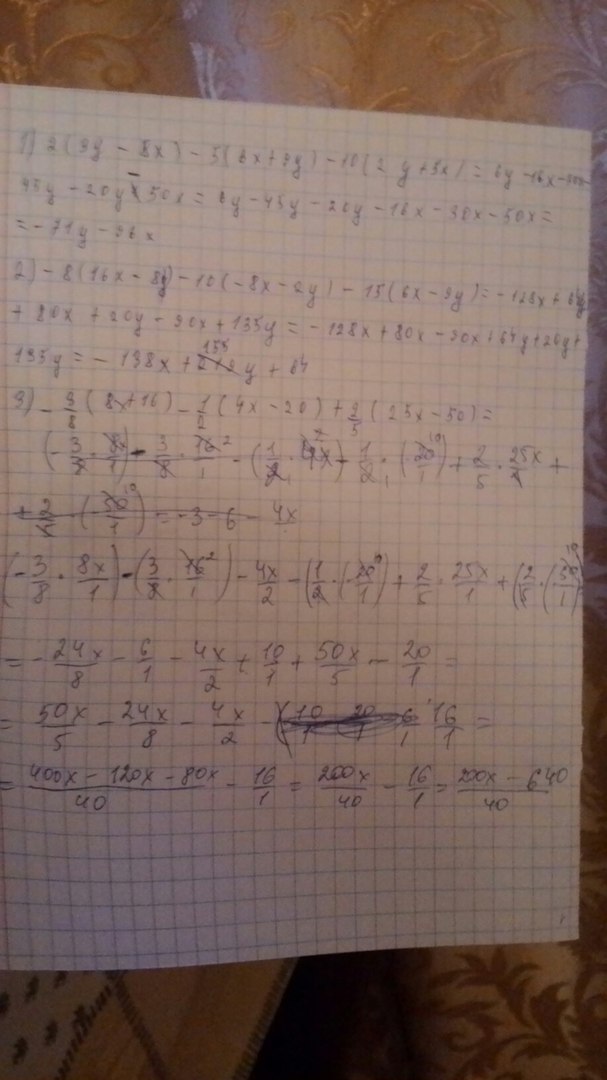 1) 2(3y - 8x) - 5(6x+9y) - 10(2y+5x) = 6y - 16x - 30x -
45y - 20y - 50x = 6y - 45y - 20y - 16x - 30x - 50x =
= - 71y - 96x
2) - 8(16x - 8y) - 10(-8x - 2y) - 15(6x - 9y) = - 128x + 64y
+ 80x + 20y - 90x + 135y = - 128x + 80x - 90x + 64y + 20y +
135y = - 138x + 155 y + 64
3) - 3/8 (8x+16) - 1/2 (4x - 20) + 2/5 (25x - 50) =
(- 3/8 · 8x/1) - 3/8 · 16/1 - (1/2 · 4x) - 1/2 · (- 20/1) + 2/5 · 25x/1 +
+ 2/5 · (- 50/1) = - 3 - 6 - 4x
(- 3/8 · 8x/1) - (3/8 · 16/1) - 4x/2 - (1/2 · (- 20/1)) + 2/5 · 25x/1 + (2/5 · (50/1)
= - 24x/8 - 6/1 - 4x/2 + 10/1 + 50x/5 - 20/1 =
= 50x/5 - 24x/8 - 4x/2 - 16/1 =
= 400x - 120x - 80x/40 - 16/1 = 200x/40 - 16/1 = 200x - 640/40